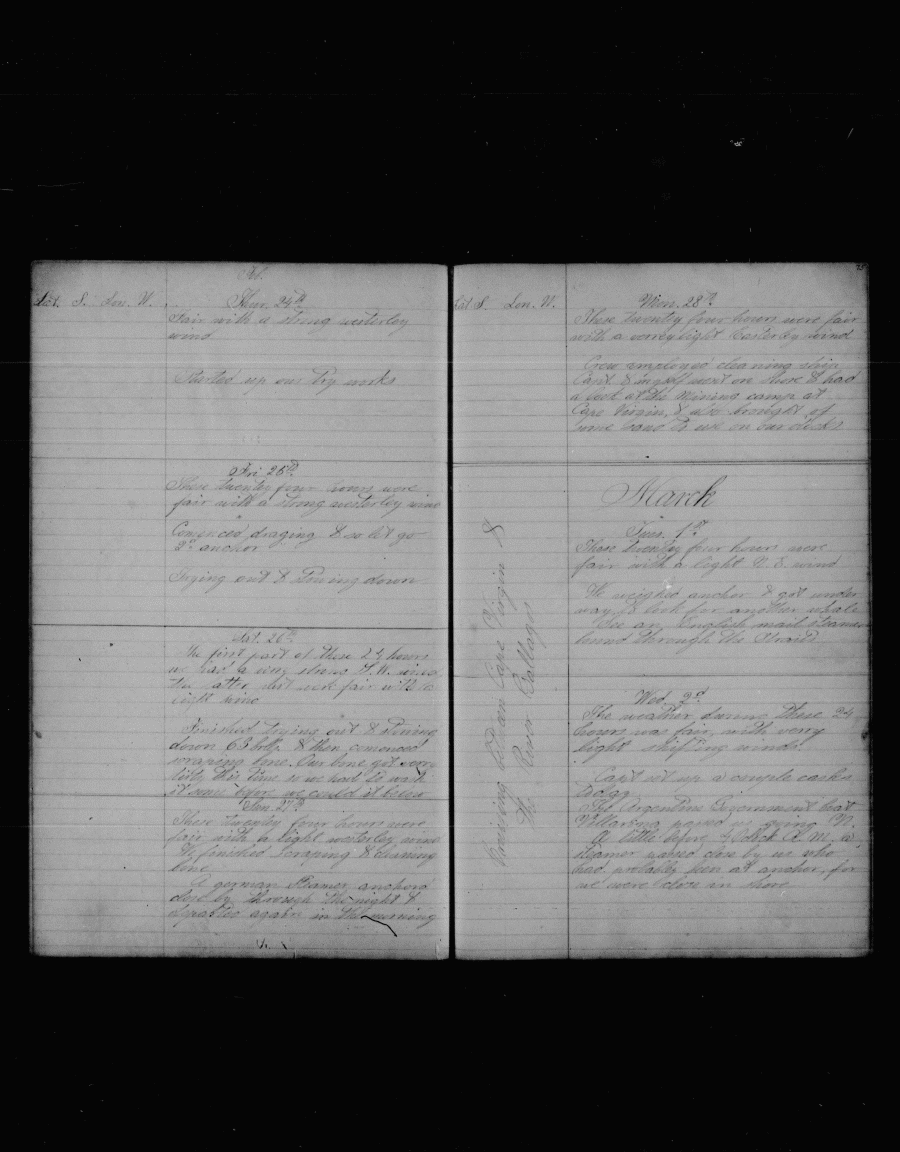 Feb.
Lat. S. Lon. W.
Thur. 24th
Fair with a strong westerley
wind
Started up our Try works
Fri 25th
These twenty four hours were
fair with a strong westerley wind
Comenced draging & so let go
2d anchor
Trying out & Stowing down
Sat. 26th
The first part of these 24 hours
we had a very strong S.W. wind
the latter part were fair with a
light wind
Finished trying out & Stowing
down 63 brls & then comenced
scraping bone. Our bone got very
this time so we had to
it some before we could it
Sun 27th
These twenty four hours were
fair with a light westerley wind
We finished Scraping & cleaning
bone
A german Steamer anchord
close by through the night &
departed again in the morning
Lat S. Lon. W.
Cruising between Cape Virgin &
the River Gallagos
75
Mon. 28th
These twenty four hours were fair
with a verry light Easterley wind
Crew employed cleaning ship
Capt & myself went on shore & had
a look at the Mining camp at
Cape Virgin, & also brought of
some sand to use on our decks
March
Tues. 1st
These twenty four hours were
fair with a light N. E. wind
We weighed anchor & got under
way to look for another whale
See an English mail steamer
bound through the Straid
Wed 2d
The weather during these 24
hours was fair, with verry
light shifting winds.
Capt set up a couple casks
to day
The Argentine Government boat
Villarino passed us going N.
A little before oclock A.M. a
steamer passed close by us who
had probably been at anchor, for
we were close in shore